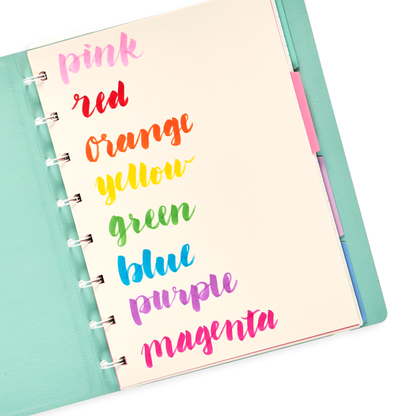 pink
red
orange
yellow
green
blue
purple
magenta